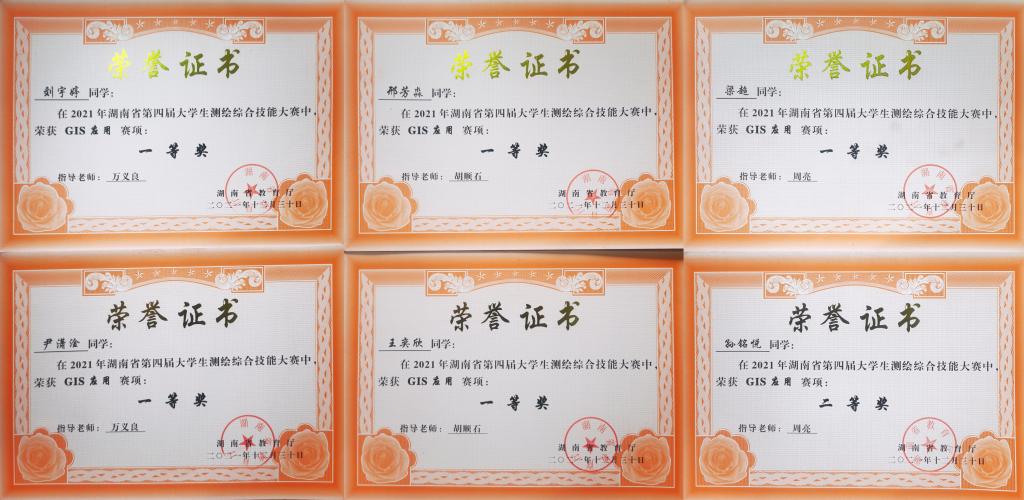 荣誉证书
刘宇婷 同学：
在 2021 年湖南省第四届大学生测绘综合技能大赛中，
荣获 GIS 应用 赛项：
一等奖
指导老师：万义良
湖南省教育厅
二〇二一年十二月三十日
荣誉证书
邢芳淼 同学：
在 2021 年湖南省第四届大学生测绘综合技能大赛中，
荣获 GIS 应用 赛项：
一等奖
指导老师：胡顺石
湖南省教育厅
二〇二一年十二月三十日
荣誉证书
梁超 同学：
在 2021 年湖南省第四届大学生测绘综合技能大赛中，
荣获 GIS 应用 赛项：
一等奖
指导老师：周亮
湖南省教育厅
二〇二一年十二月三十日
荣誉证书
尹潇淦 同学：
在 2021 年湖南省第四届大学生测绘综合技能大赛中，
荣获 GIS 应用 赛项：
一等奖
指导老师：万义良
湖南省教育厅
二〇二一年十二月三十日
荣誉证书
王奕欣 同学：
在 2021 年湖南省第四届大学生测绘综合技能大赛中，
荣获 GIS 应用 赛项：
一等奖
指导老师：胡顺石
湖南省教育厅
二〇二一年十二月三十日
荣誉证书
孙铭悦 同学：
在 2021 年湖南省第四届大学生测绘综合技能大赛中，
荣获 GIS 应用 赛项：
二等奖
指导老师：周亮
湖南省教育厅
二〇二一年十二月三十日